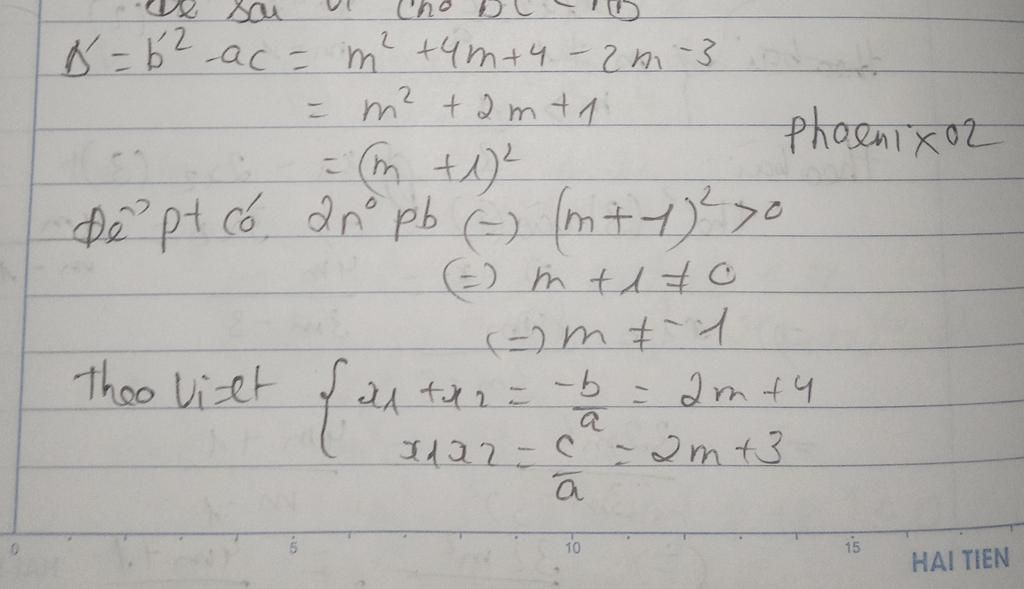 Đề sai vì cho
Δ' = b'² - ac = m² + 4m + 4 - 2m - 3
= m² + 2m + 1
phoenix02
= (m + 1)²
Để pt có 2n⁰ pb (=) (m + 1)² > 0
(=) m + 1 ≠ 0
(=) m ≠ -1
Theo Vi-et { x1 + x2 = -b/a = 2m + 4
x1x2 = c/a = 2m + 3
0 5 10 15
HAI TIEN